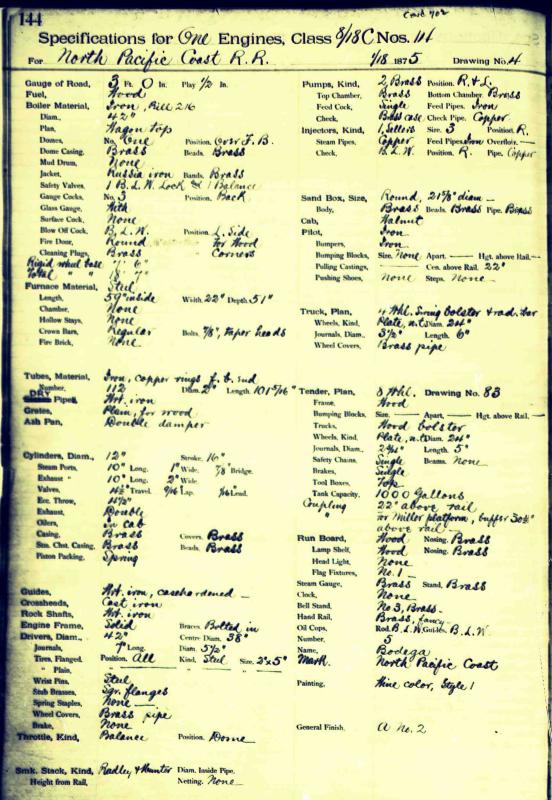 144
Card 702
Specifications for One Engines, Class 8/18C Nos. 111
For North Pacific Coast R. R. 1/18 1875 Drawing No. 4
Gauge of Road, 3 Ft. 0 In. Play 1/2 In.
Fuel, Wood
Boiler Material, Iron, Bill 216
Diam., 42"
Plan, Wagon top
Domes, No. One Position, Over F. B.
Dome Casing, Brass Beads, Brass
Mud Drum, None
Jacket, Russia iron Bands, Brass
Safety Valves, 1 B. L. W. Lock & 1 Balance
Gauge Cocks, No. 3 Position, Back
Glass Gauge, With
Surface Cock, None
Blow Off Cock, B. L. W. Position, L. Side
Fire Door, Round for Wood
Cleaning Plugs, Brass Corners
Rigid wheel base 7' 6"
Total " " 18' 7"
Furnace Material, Steel
Length, 59" inside Width, 22" Depth, 51"
Chamber, None
Hollow Stays, None
Crown Bars, Regular Bolts, 7/8", taper heads
Fire Brick, None
Tubes, Material, Iron, copper rings f. b. end
Number, 112 Diam. 2" Length, 101 5/16"
DRY Pipe, Wrt. iron
Grates, Plain, for wood
Ash Pan, Double damper
Cylinders, Diam., 12" Stroke, 16"
Steam Ports, 10" Long. 1" Wide. 7/8" Bridge.
Exhaust " 10" Long. 2" Wide.
Valves, Travel. 9/16 Lap. 1/16 Lead.
Ecc. Throw, 4 1/2"
Exhaust, Double
Oilers, in cab
Casing, Brass Covers, Brass
Stm. Chst. Casing, Brass Beads, Brass
Piston Packing, Spring
Guides, Wrt. iron, casehardened —
Crossheads, Cast iron
Rock Shafts, Wrt. iron
Engine Frame, Solid Braces, Bolted in
Drivers, Diam., 42" Centre Diam. 38"
Journals, 7" Long. Diam. 5 1/2"
Tires, Flanged, Position, All Kind, Steel Size, 2"x5"
" Plain, " " "
Wrist Pins, Steel
Stub Brasses, Sqr. flanges
Spring Staples, None —
Wheel Covers, Brass pipe
Brake, None
Throttle, Kind, Balance Position, Dome
Smk. Stack, Kind, Radley & Hunter Diam. Inside Pipe,
Height from Rail, Netting, None
Pumps, Kind, 2, Brass Position, R. & L.
Top Chamber, Brass Bottom Chamber, Brass
Feed Cock, Single Feed Pipes, Iron
Check, Brass case Check Pipe, Copper
Injectors, Kind, 1, Sellers Size, 3 Position, R.
Steam Pipes, Copper Feed Pipes, Iron Overflow, —
Check, B. L. W. Position, R. Pipe, Copper
Sand Box, Size, Round, 21 5/8" diam —
Body, Brass Beads, Brass Pipe, Brass
Cab, Walnut
Pilot, Iron
Bumpers, Iron
Bumping Blocks, Size, None Apart, — Hgt. above Rail, —
Pulling Castings, — Cen. above Rail, 22"
Pushing Shoes, None Steps, None
Truck, Plan, 4 Whl. Swing bolster & rad. bar
Wheels, Kind, Plate, n.t. Diam. 24"
Journals, Diam., 3 1/2" Length, 6"
Wheel Covers, Brass pipe
Tender, Plan, 8 Whl. Drawing No. 83
Frame, Wood
Bumping Blocks, Size, — Apart, — Hgt. above Rail, —
Trucks, Wood bolster
Wheels, Kind, Plate, n.t. Diam. 24"
Journals, Diam., 2 3/4" Length, 5"
Safety Chains, Single Beams, None
Brakes, Single
Tool Boxes, Top
Tank Capacity, 1000 Gallons
Coupling 22" above rail
" for Miller platform, buffer 30 3/4"
above rail —
Run Board, Wood Nosing, Brass
Lamp Shelf, Wood Nosing, Brass
Head Light, None
Flag Fixtures, No. 1 —
Steam Gauge, Brass Stand, Brass
Clock, None
Bell Stand, No 3, Brass —
Hand Rail, Brass, fancy —
Oil Cups, Rod, B. L. W. Guides, B. L. W.
Number, 5
Name, Bodega
Mark, North Pacific Coast
Painting, Wine color, Style 1
General Finish, A No. 2